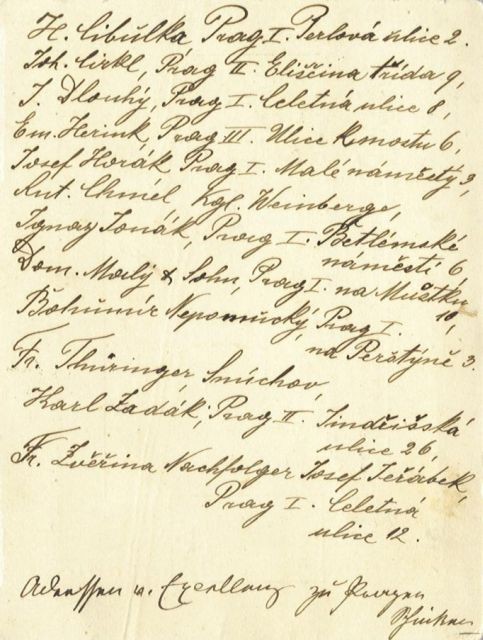 H. Cibulka Prag I. Perlová ulice 2.
Joh. Cirkl, Prag II. Eliščina třída 9,
J. Dlouhý, Prag I. Celetná ulice 8,
Em. Herink Prag III. Ulice k mostu 6,
Josef Horák Prag I. Malé náměstý 3,
Ant. Chmel, Kgl. Weinberge,
Ignaz Jonák, Prag I. Betlémské
náměstí 6
Dom. Malý & Sohn, Prag I. na Můstku
10,
Bohumír Nepomucký, Prag I.
na Perštýně 3.
Fr. Thüringer, Smíchov,
Karl Zadák, Prag II. Jindřišská
ulice 26,
Fr. Zvěřina Nachfolger Josef Jeřábek,
Prag I. Celetná
ulice 12.
Adressen v. zu